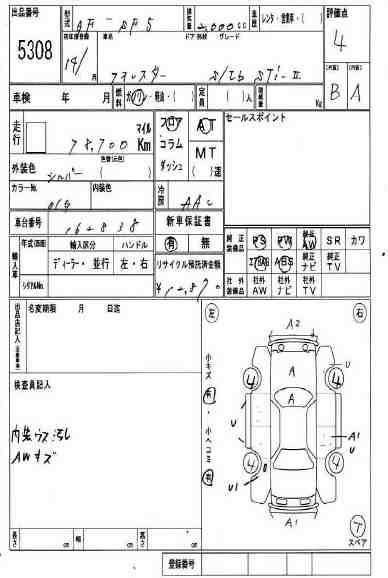 出品番号 型式 排気量 車歴 レンタ・営業車・( ) 評価点
5308 2,000cc 4
初年度登録 車名 ドア 形状 グレード
14/ フォレスター S/Tb STi-II
車検 年 月 燃料 ガソリン・軽油・( ) 定員 ( )人 積載量 Kg B A
走行 78,700 マイル Km フロア AT セールスポイント
コラム MT
外装色 色替(元色) ダッシュ ( )速
シルバー ( )
カラーNo. 内装色 冷房 AAC
車台番号 新車保証書
162838 有 無
純正装備品 PS PW 純正AW SR カワ
輸入車 年式(西暦) 輸入区分 ハンドル
ディーラー・並行 左・右 リサイクル預託済金額 エアB ABS 純正ナビ 純正TV
シリアルNo. 社外装備品 社外AW 社外ナビ 社外TV
出品店記入 名変期限 月 日迄 左 右
A2
小キズ 有 ・ 小ヘコミ 有
検査員記入
内装ウス汚し
AWキズ
A U
4 4
A
U A1
4 4
U1
A1
スペア
長さ cm 幅 cm 高さ cm
登録番号